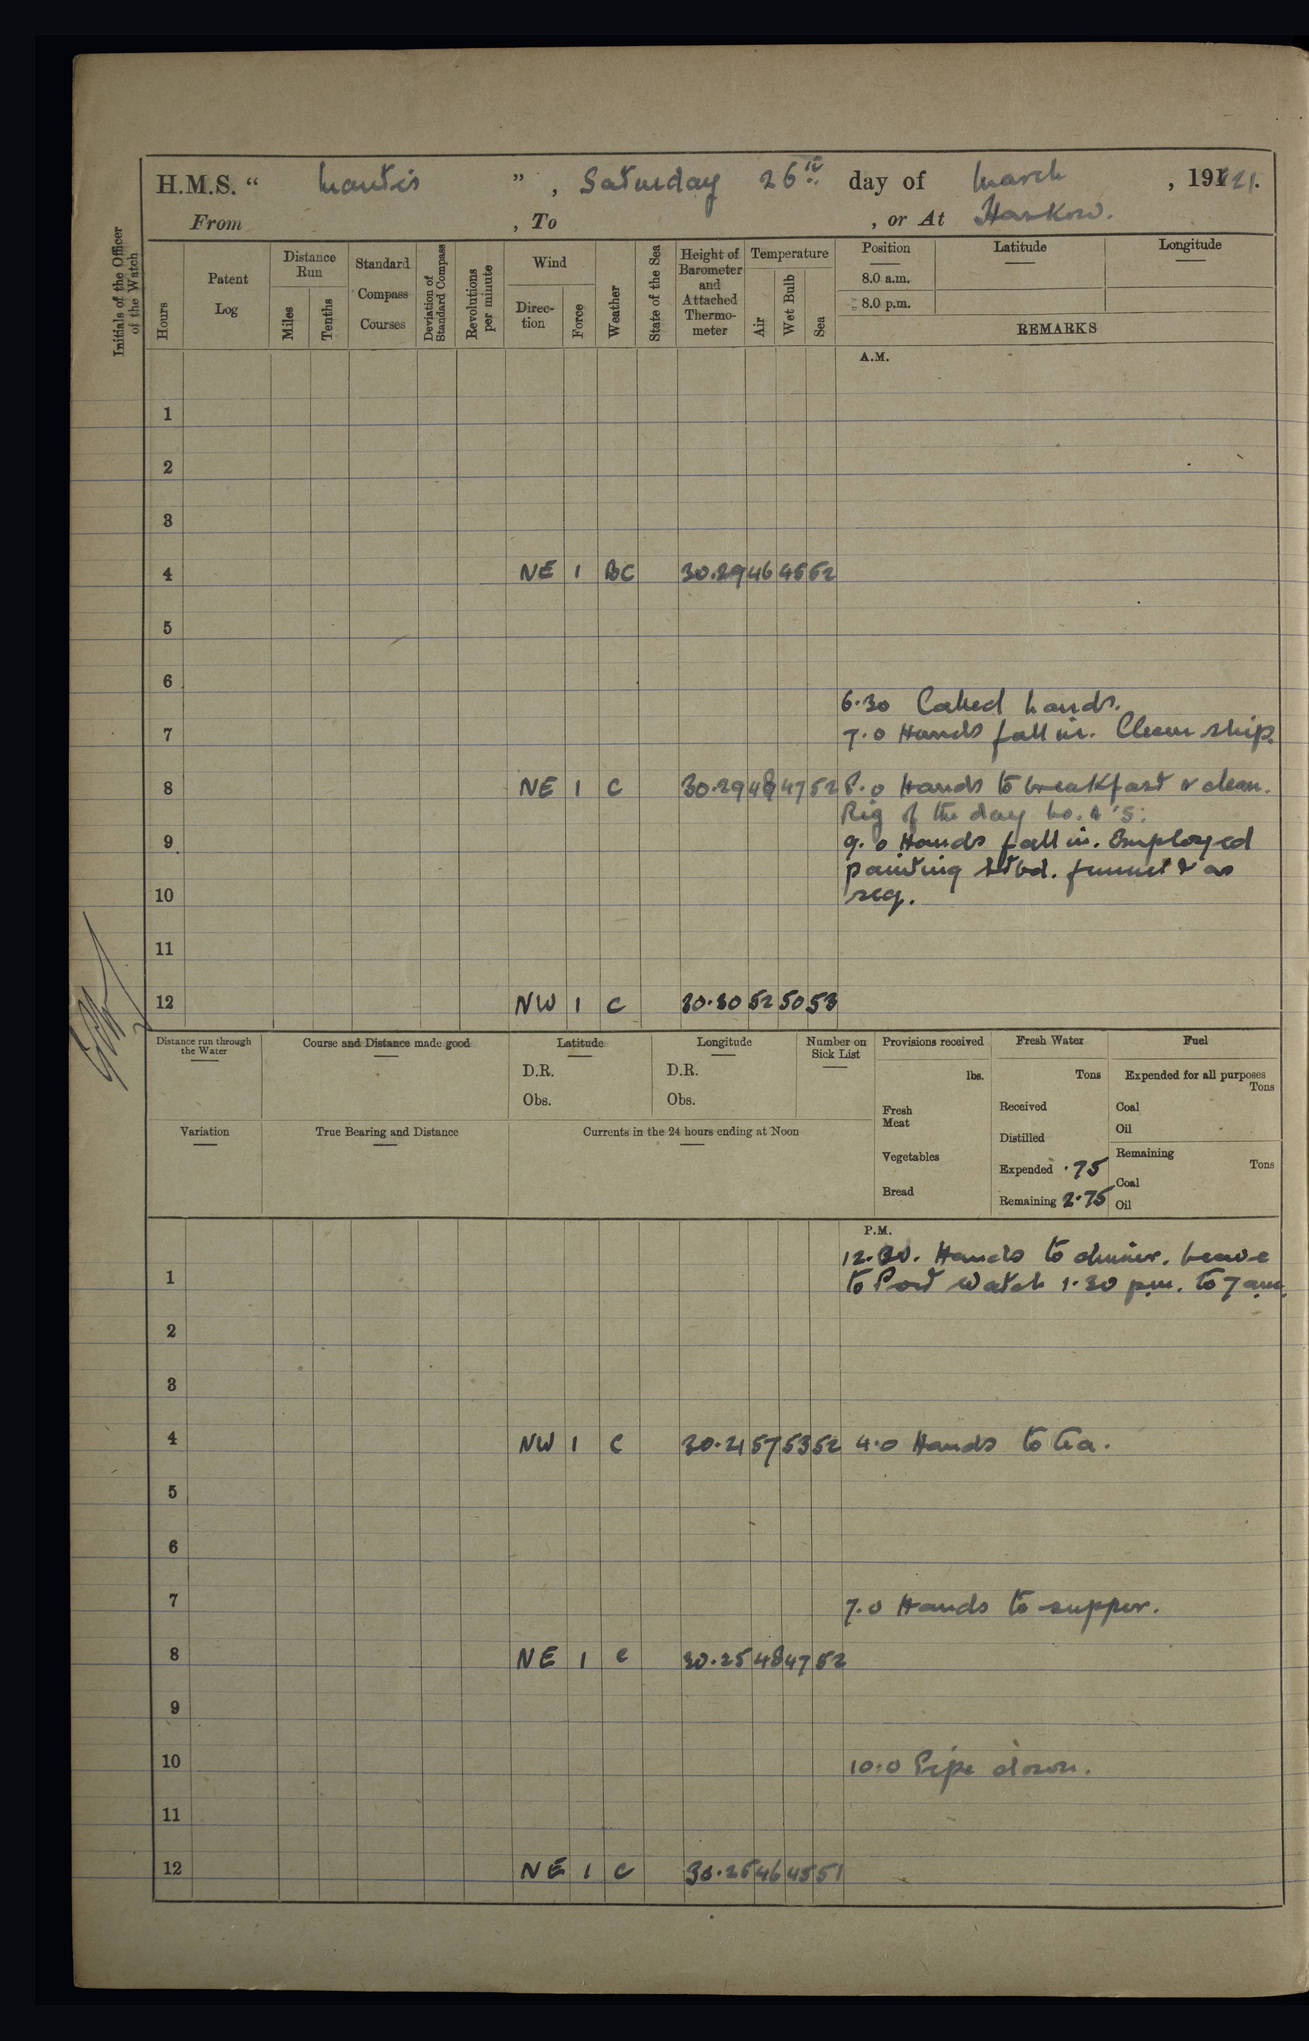 H.M.S. “ Mantis ” , Saturday 26th day of March , 1921.
From , To , or At Hankow.
Initials of the Officer of the Watch
Hours
Patent Log
Distance Run
Miles
Tenths
Standard Compass Courses
Deviation of Standard Compass
Revolutions per minute
Wind
Direc-tion
Force
Weather
State of the Sea
Height of Barometer and Attached Thermo-meter
Temperature
Air
Wet Bulb
Sea
Position
Latitude
Longitude
8.0 a.m.
8.0 p.m.
REMARKS
A.M.
1
2
3
4 NE 1 BC 30.29 46 45 52
5
6
6.30 Called hands.
7 7.0 Hands fall in. Clean ship.
8 NE 1 C 30.29 48 47 52 8.0 Hands to breakfast & clean.
Rig of the day No. 4's.
9 9.0 Hands fall in. Employed
painting stbd. funnel & as
10 req.
11
12 NW 1 C 30.30 52 50 53
Distance run through the Water
Course and Distance made good
Latitude
D.R.
Obs.
Longitude
D.R.
Obs.
Number on Sick List
Provisions received
lbs.
Fresh Meat
Vegetables
Bread
Fresh Water
Tons
Received
Distilled
Expended .75
Remaining 2.75
Fuel
Expended for all purposes
Tons
Coal
Oil
Remaining
Tons
Coal
Oil
Variation
True Bearing and Distance
Currents in the 24 hours ending at Noon
P.M.
12.30. Hands to dinner. Leave
1 to Port Watch 1.30 p.m. to 7 am.
2
3
4 NW 1 C 30.21 57 53 52 4.0 Hands to tea.
5
6
7 7.0 Hands to supper.
8 NE 1 C 30.25 48 47 52
9
10 10.0 Pipe down.
11
12 NE 1 C 30.25 46 45 51